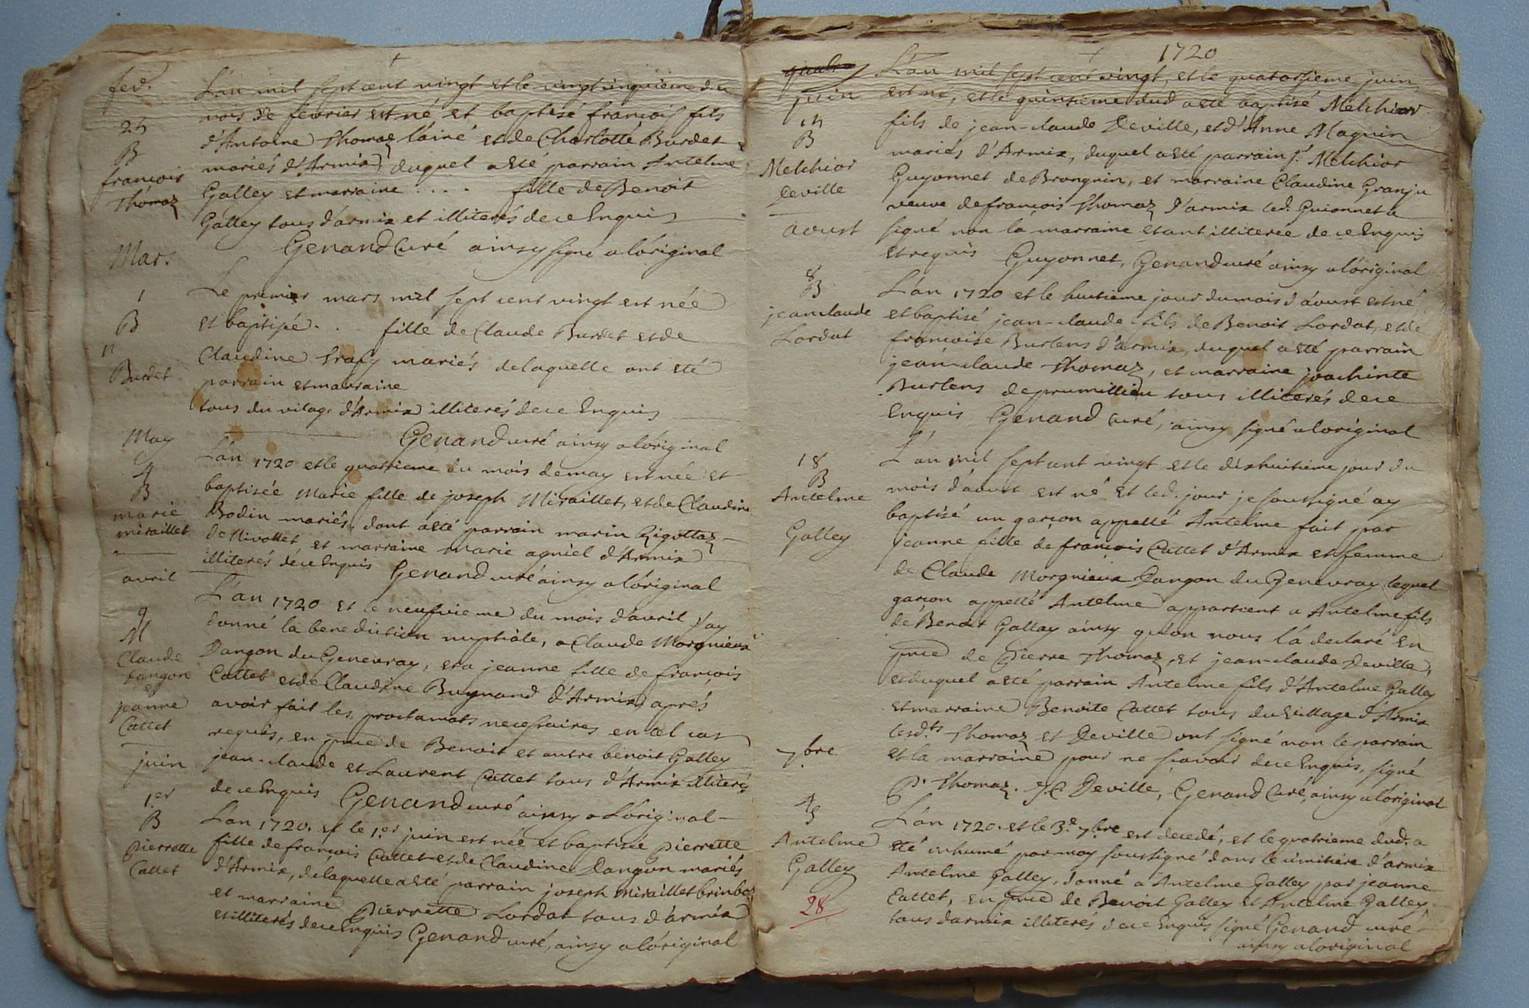 fev.r
L'an mil sept cent vingt et le vingtcinquieme du
mois de fevrier est né et baptisé françois fils
25
d'Antoine Thomaz l'ainé et de Charlotte Burdet
B
mariés d'Armix duquel a eté parrain Antelme
françois
Thomaz
Galley et marraine . . . . fille de Benoit
Galley tous d'armix et illiterés de ce Enquis
Genand Curé ainsy signé a l'original
Mars
1
Le premier mars mil sept cent vingt est née
B
et baptisée . . fille de Claude Burdet et de
Claudine mariés de laquelle ont eté
Burdet
parrain et marraine
tous du vilage d'Armix illiterés de ce Enquis
Genand curé ainsy a l'original
May
L'an 1720 et le quatrieme du mois de may est née et
4
B
baptisée Marie fille de joseph Miraillet, et de Claudine
marie
miraillet
Bodin mariés, dont a eté parrain marin Rigottaz
de Nivollet et marraine marie agniel d'Armix
illiterés de ce Enquis Genand curé ainsy a l'original
avril
L'an 1720 et le neufvieme du mois d'avril j'ay
9
M
donné la benediction nuptiale, a Claude Morgnieux
Claude
Dangon
et
jeanne
Cattet
Dangon du Genevray, et a jeanne fille de françois
Cattet et de Claudine Bugnand d'Armix, aprés
avoir fait les proclamats necessaires en tel cas
requis, en pnce de Benoit et autre benoit Galley
juin
jean-claude et Laurent Cattet tous d'Armix illiterés
de ce Enquis Genand curé ainsy a l'original
1.er
B
L'an 1720. et le 1.er juin est née et baptisée pierrette
pierrette
Cattet
fille de françois Cattet et de Claudine Dangon mariés
d'Armix, de laquelle a eté parrain joseph Miraillet
et marraine Pierrette Lordat tous d'armix
et illiterés de ce Enquis Genand curé, ainsy a l'original
1720
L'an mil sept cent vingt, et le quatorzieme juin
juin
est né, et le quinzieme dud a eté baptisé Melchior
15
B
fils de jean-claude Deville, et d'Anne Maquin
mariés d'Armix, duquel a eté parrain s.r Melchior
Melchior
Deville
Guyonnet de Brongnin, et marraine Claudine Granju
veuve de françois Thomaz d'armix led. Guionnet a
aoust
signé non la marraine etant illiterée de ce Enquis
et requis Guyonnet, Genand curé ainsy a l'original
8
B
L'an 1720 et le huitieme jour du mois d'avoust est né
jean claude
Lordat
et baptisé jean-claude fils de Benoit Lordat, et de
françoise Burlens d'armix, duquel a eté parrain
jean-claude Thomaz, et marraine joachinte
Burlens de premillieu tous illiterés de ce
Enquis Genand curé, ainsy signé a l'original
18
B
L'an mil sept cent vingt et le dixhuitieme jour du
Antelme
Galley
mois d'aoust est né et led. jour je soussigné ay
baptisé un garçon appellé Antelme fait par
jeanne fille de françois Cattet d'Armix et femme
de Claude Morgnieux Dangon du Genevray, lequel
garçon appellé Antelme appartient a Antelme fils
de Benoit Galley ainsy qu'on nous l'a declaré en
pnce de Pierre Thomaz, et jean-claude Deville,
et duquel a eté parrain Antelme fils d'Antelme Galley
et marraine Benoite Cattet tous du village d'Armix
lesd.ts Thomaz et Deville ont signé non le parrain
7bre
et la marraine pour ne sçavoir de ce Enquis, signé
P. Thomaz. JC Deville, Genand Curé, ainsy a l'original
4
S
L'an 1720. et le 3.e 7bre est decedé, et le quatrieme dud. a
Antelme
Galley
eté inhumé par moy soussigné dans le cimitiere d'armix
Antelme Galley, donné a Antelme Galley par jeanne
28
Cattet, en pnce de Benoit Galley et Antelme Galley
tous d'armix illiterés de ce Enquis signé Genand curé
ainsy a l'original